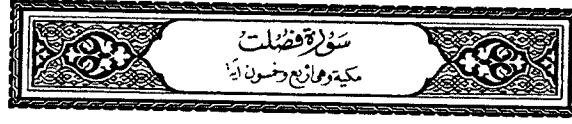 سورة فصلت
مكية وهي أربع وخمسون آية